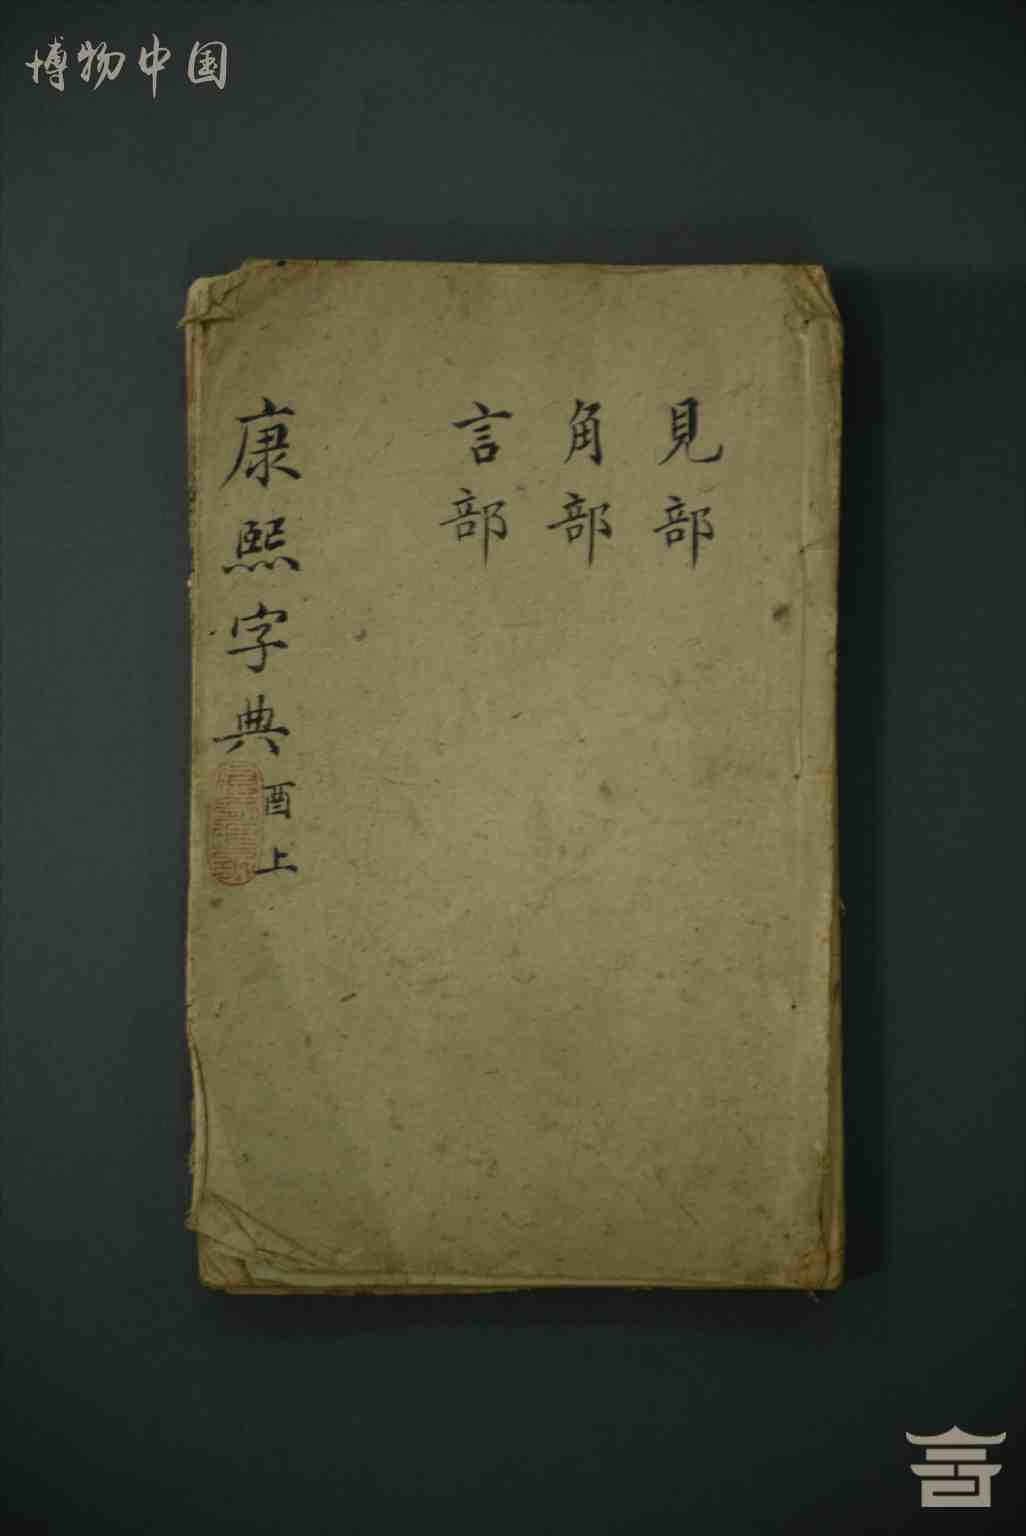 博物中国
見部
角部
言部
康熙字典酉上